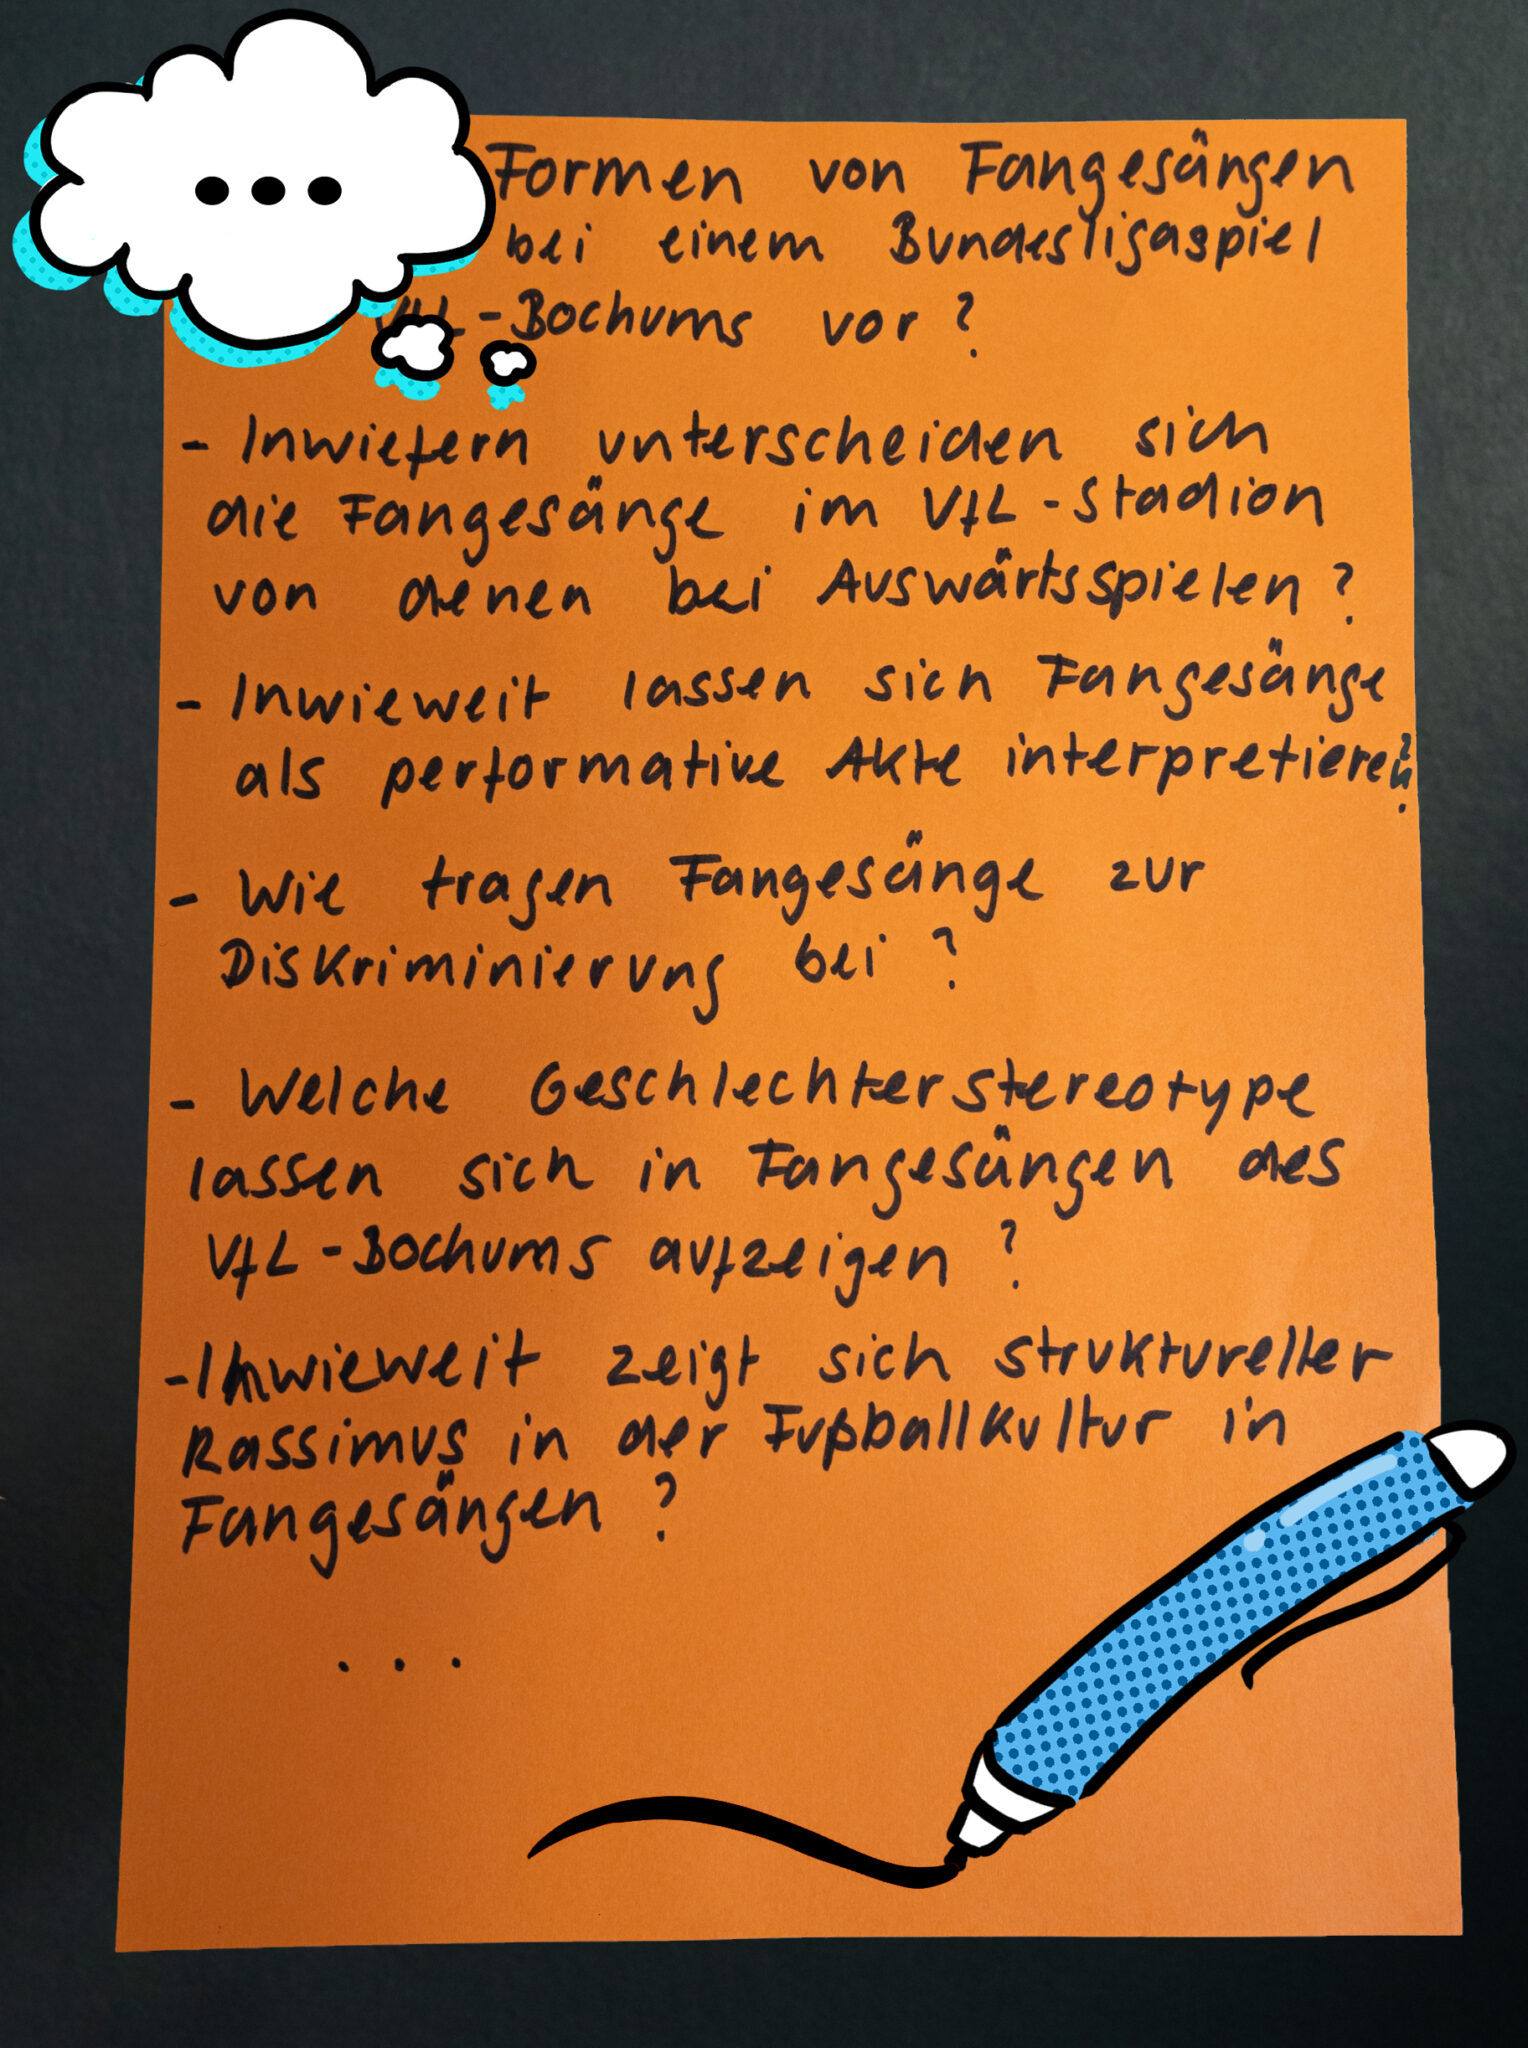 Formen von Fangesängen
bei einem Bundesligaspiel
VfL-Bochums vor?
- Inwiefern unterscheiden sich
die Fangesänge im VfL-Stadion
von denen bei Auswärtsspielen?
- Inwieweit lassen sich Fangesänge
als performative Akte interpretieren?
- Wie tragen Fangesänge zur
Diskriminierung bei?
- Welche Geschlechterstereotype
lassen sich in Fangesängen des
VfL-Bochums aufzeigen?
- Inwieweit zeigt sich struktureller
Rassimus in der Fußballkultur in
Fangesängen?
...